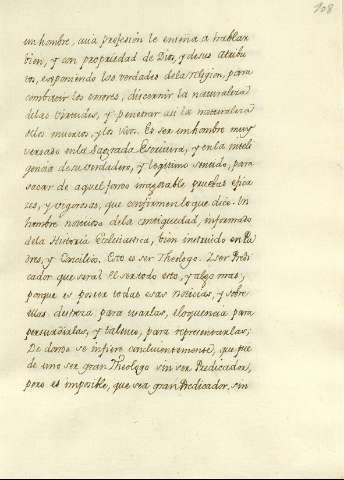 108
un hombre, cuia profesion le enseña a hablar
bien, y con propriedad de Dios, y de sus atribu
tos, exponiendo las verdades dela religion, para
combatir los errores, discernir la naturaleza
delas Virtudes, y penetrar asi la naturaleza
delos muertos, y los vivos. Es ser un hombre muy
versado en la Sagrada Escritura, y en la inteli
gencia de su verdadero, y legitimo sentido, para
sacar de aquel fondo inagotable pruebas efica
zes, y vigorosas, que confirmen lo que dice. Un
hombre noticioso dela antiguedad, informado
dela Historia Eclesiastica, bien instruido en Pa
dres, y Concilios. Esto es ser Theologo. I ser Predi
cador que será? El ser todo esto, y algo mas;
porque es poseer todas esas noticias, y sobre
ellas destreza para usarlas, eloquencia para
persuadirlas, y talento, para representarlas;
De donde se infiere concluientemente, que pue
de uno ser gran Theologo sin ser Predicador,
pero es imposible, que sea gran Predicador, sin